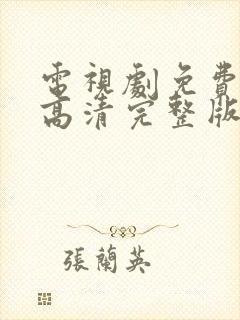 電視劇免費
高清完整版
張蘭英